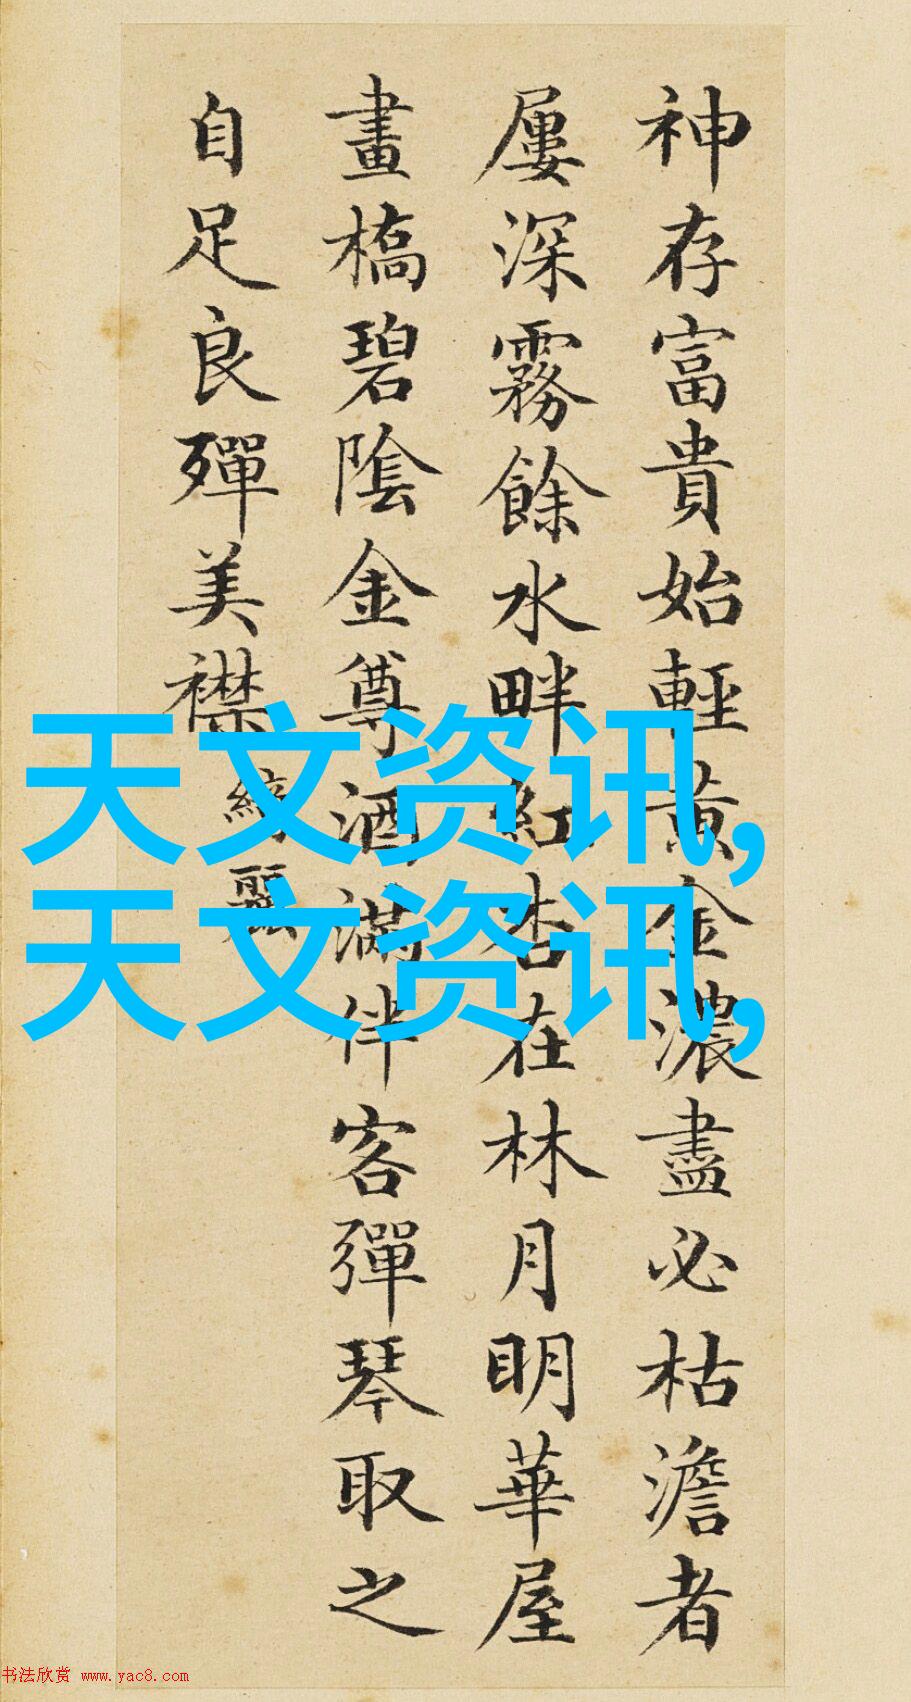 神存富貴始輕黄金濃盡必枯澹者
屢深霧餘水畔紅杏在林月明華屋
畫橋碧陰金尊酒滿伴客彈琴取之
自足良殫美襟綺麗
天文资讯,
天文资讯,
书法欣赏 www.yac8.com